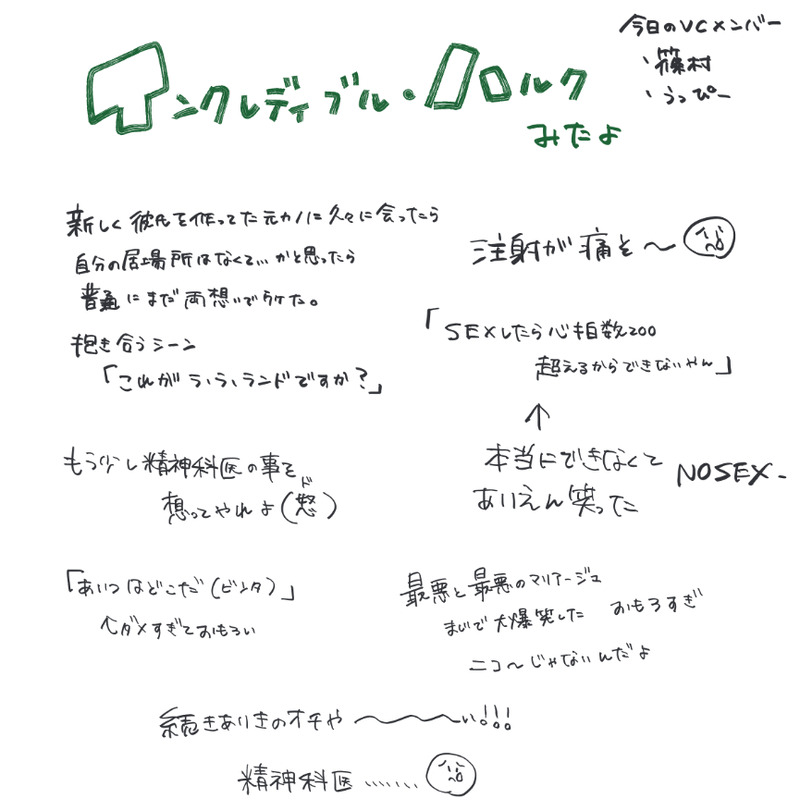 今日のVCメンバー
・篠村
・うっぴー
インクレディブル・ハルク
みたよ
新しく彼氏を作ってた元カノに久々に会ったら
自分の居場所はなくて…かと思ったら
普通にまだ両想いでウケた。
抱き合うシーン
「これがラ・ラ・ランドですか?」
注射が痛そ〜
「SEXしたら心拍数200
超えるからできないやん」
↑
本当にできなくて
ありえん笑った
NOSEX-
もう少し精神科医の事を
想ってやれよ(怒)
ド
「あいつはどこだ(ビンタ)」
↑ダメすぎておもろい
最悪と最悪のマリアージュ
まじで大爆笑した おもろすぎ
ニコ〜じゃないんだよ
続きありきのオチや〜〜〜い!!!
精神科医.......